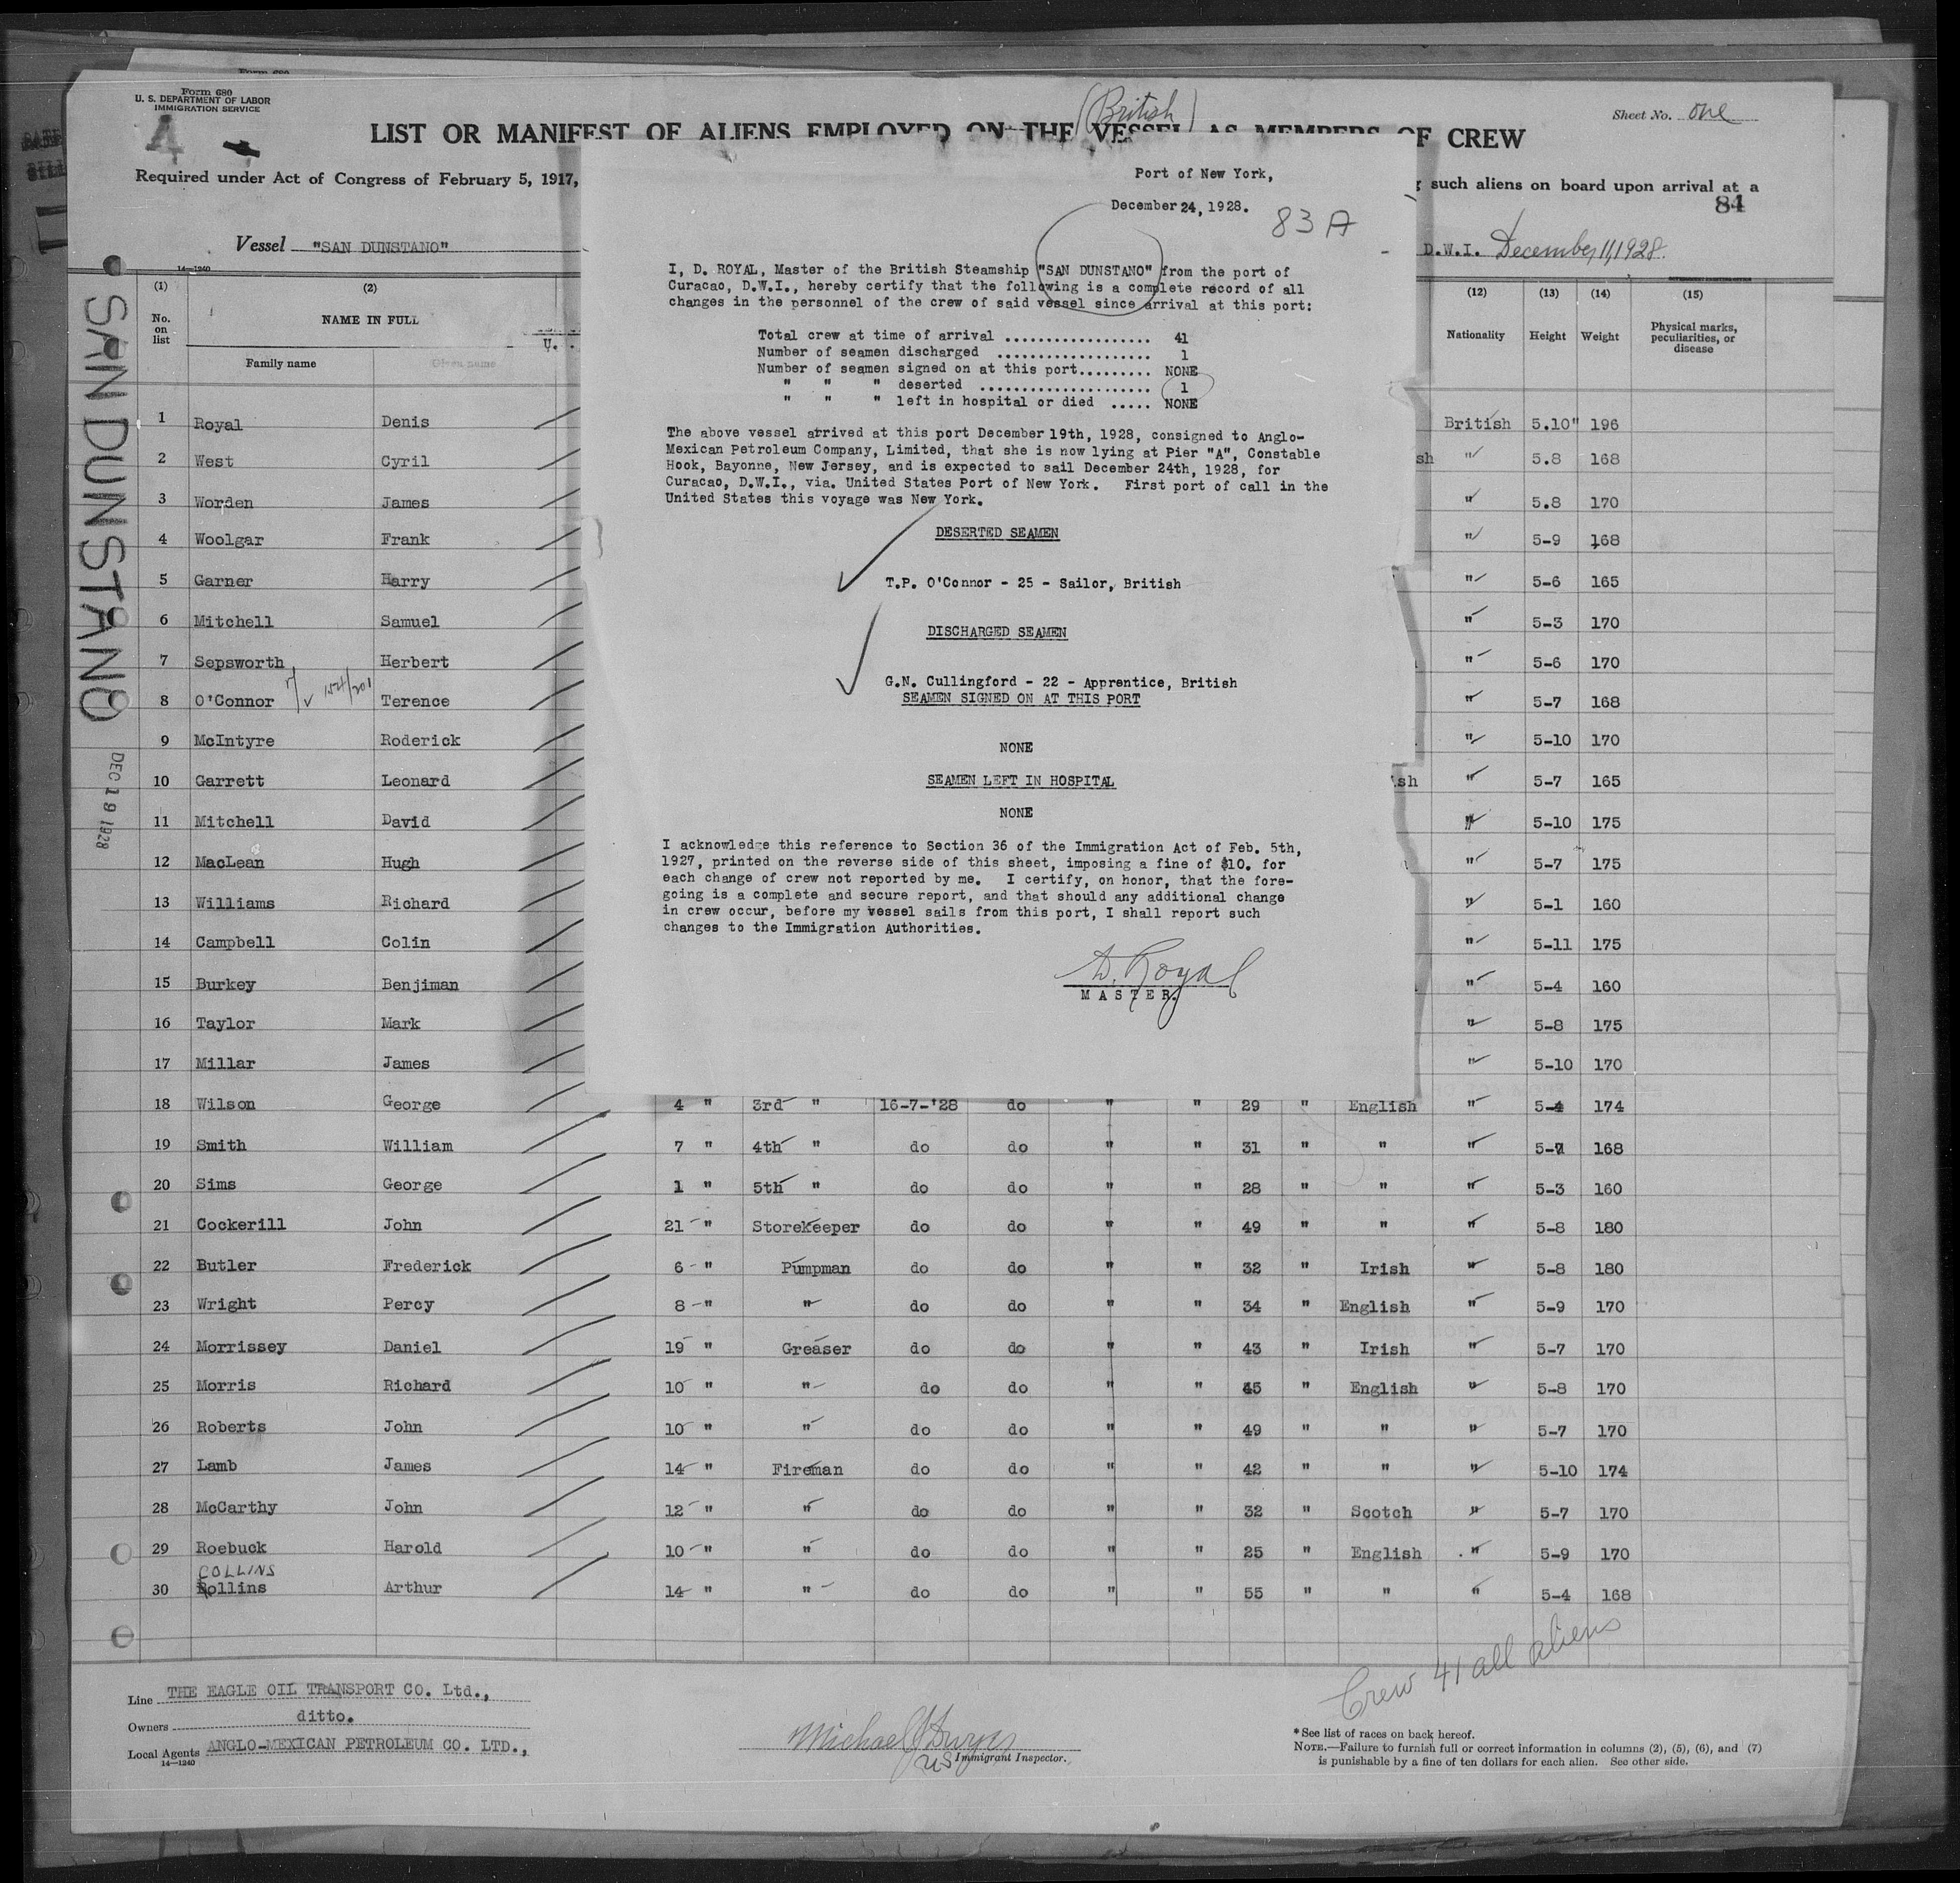 Form 680
U. S. DEPARTMENT OF LABOR
IMMIGRATION SERVICE
A
(British)
Sheet No. One
LIST OR MANIFEST OF ALIENS EMPLOYED ON THE VESSEL AS MEMBERS OF CREW
Required under Act of Congress of February 5, 1917,
such aliens on board upon arrival at a
84
Vessel "SAN DUNSTANO"
D.W.I. December 11, 1928.
14—1240
SAN DUNSTANO
DEC 19 1928
Port of New York,
December 24, 1928.
83 A
I, D. ROYAL, Master of the British Steamship "SAN DUNSTANO" from the port of
Curacao, D.W.I., hereby certify that the following is a complete record of all
changes in the personnel of the crew of said vessel since arrival at this port:
Total crew at time of arrival .................. 41
Number of seamen discharged .................. 1
Number of seamen signed on at this port......... NONE
" " " deserted ..................... 1
" " " left in hospital or died ..... NONE
The above vessel arrived at this port December 19th, 1928, consigned to Anglo-
Mexican Petroleum Company, Limited, that she is now lying at Pier "A", Constable
Hook, Bayonne, New Jersey, and is expected to sail December 24th, 1928, for
Curacao, D.W.I., via. United States Port of New York. First port of call in the
United States this voyage was New York.
DESERTED SEAMEN
T.P. O'Connor - 25 - Sailor, British
DISCHARGED SEAMEN
G.N. Cullingford - 22 - Apprentice, British
SEAMEN SIGNED ON AT THIS PORT
NONE
SEAMEN LEFT IN HOSPITAL
NONE
I acknowledge this reference to Section 36 of the Immigration Act of Feb. 5th,
1927, printed on the reverse side of this sheet, imposing a fine of $10. for
each change of crew not reported by me. I certify, on honor, that the fore-
going is a complete and secure report, and that should any additional change
in crew occur, before my vessel sails from this port, I shall report such
changes to the Immigration Authorities.
D. Royal
MASTER.
(1) (2) (12) (13) (14) (15)
No. on list NAME IN FULL Nationality Height Weight Physical marks, peculiarities, or disease
Family name Given name
1 Royal Denis British 5.10" 196
2 West Cyril " 5.8 168
3 Worden James " 5.8 170
4 Woolgar Frank " 5-9 168
5 Garner Harry " 5-6 165
6 Mitchell Samuel " 5-3 170
7 Sepsworth Herbert " 5-6 170
8 O'Connor Terence " 5-7 168
9 McIntyre Roderick " 5-10 170
10 Garrett Leonard " 5-7 165
11 Mitchell David " 5-10 175
12 MacLean Hugh " 5-7 175
13 Williams Richard " 5-1 160
14 Campbell Colin " 5-11 175
15 Burkey Benjiman " 5-4 160
16 Taylor Mark " 5-8 175
17 Millar James " 5-10 170
18 Wilson George 4 " 3rd " 16-7-'28 do " " 29 " English " 5-4 174
19 Smith William 7 " 4th " do do " " 31 " " " 5-7 168
20 Sims George 1 " 5th " do do " " 28 " " " 5-3 160
21 Cockerill John 21 " Storekeeper do do " " 49 " " " 5-8 180
22 Butler Frederick 6 " Pumpman do do " " 32 " Irish " 5-8 180
23 Wright Percy 8 " " do do " " 34 " English " 5-9 170
24 Morrissey Daniel 19 " Greaser do do " " 43 " Irish " 5-7 170
25 Morris Richard 10 " " do do " " 45 " English " 5-8 170
26 Roberts John 10 " " do do " " 49 " " " 5-7 170
27 Lamb James 14 " Fireman do do " " 42 " " " 5-10 174
28 McCarthy John 12 " " do do " " 32 " Scotch " 5-7 170
29 Roebuck Harold 10 " " do do " " 25 " English " 5-9 170
COLLINS
30 Rollins Arthur 14 " " do do " " 55 " " " 5-4 168
Crew 41 all aliens
Line THE EAGLE OIL TRANSPORT CO. Ltd.,
Owners ditto.
Local Agents ANGLO-MEXICAN PETROLEUM CO. LTD.,
14—1240
Michael J
US Immigrant Inspector.
*See list of races on back hereof.
NOTE.—Failure to furnish full or correct information in columns (2), (5), (6), and (7)
is punishable by a fine of ten dollars for each alien. See other side.